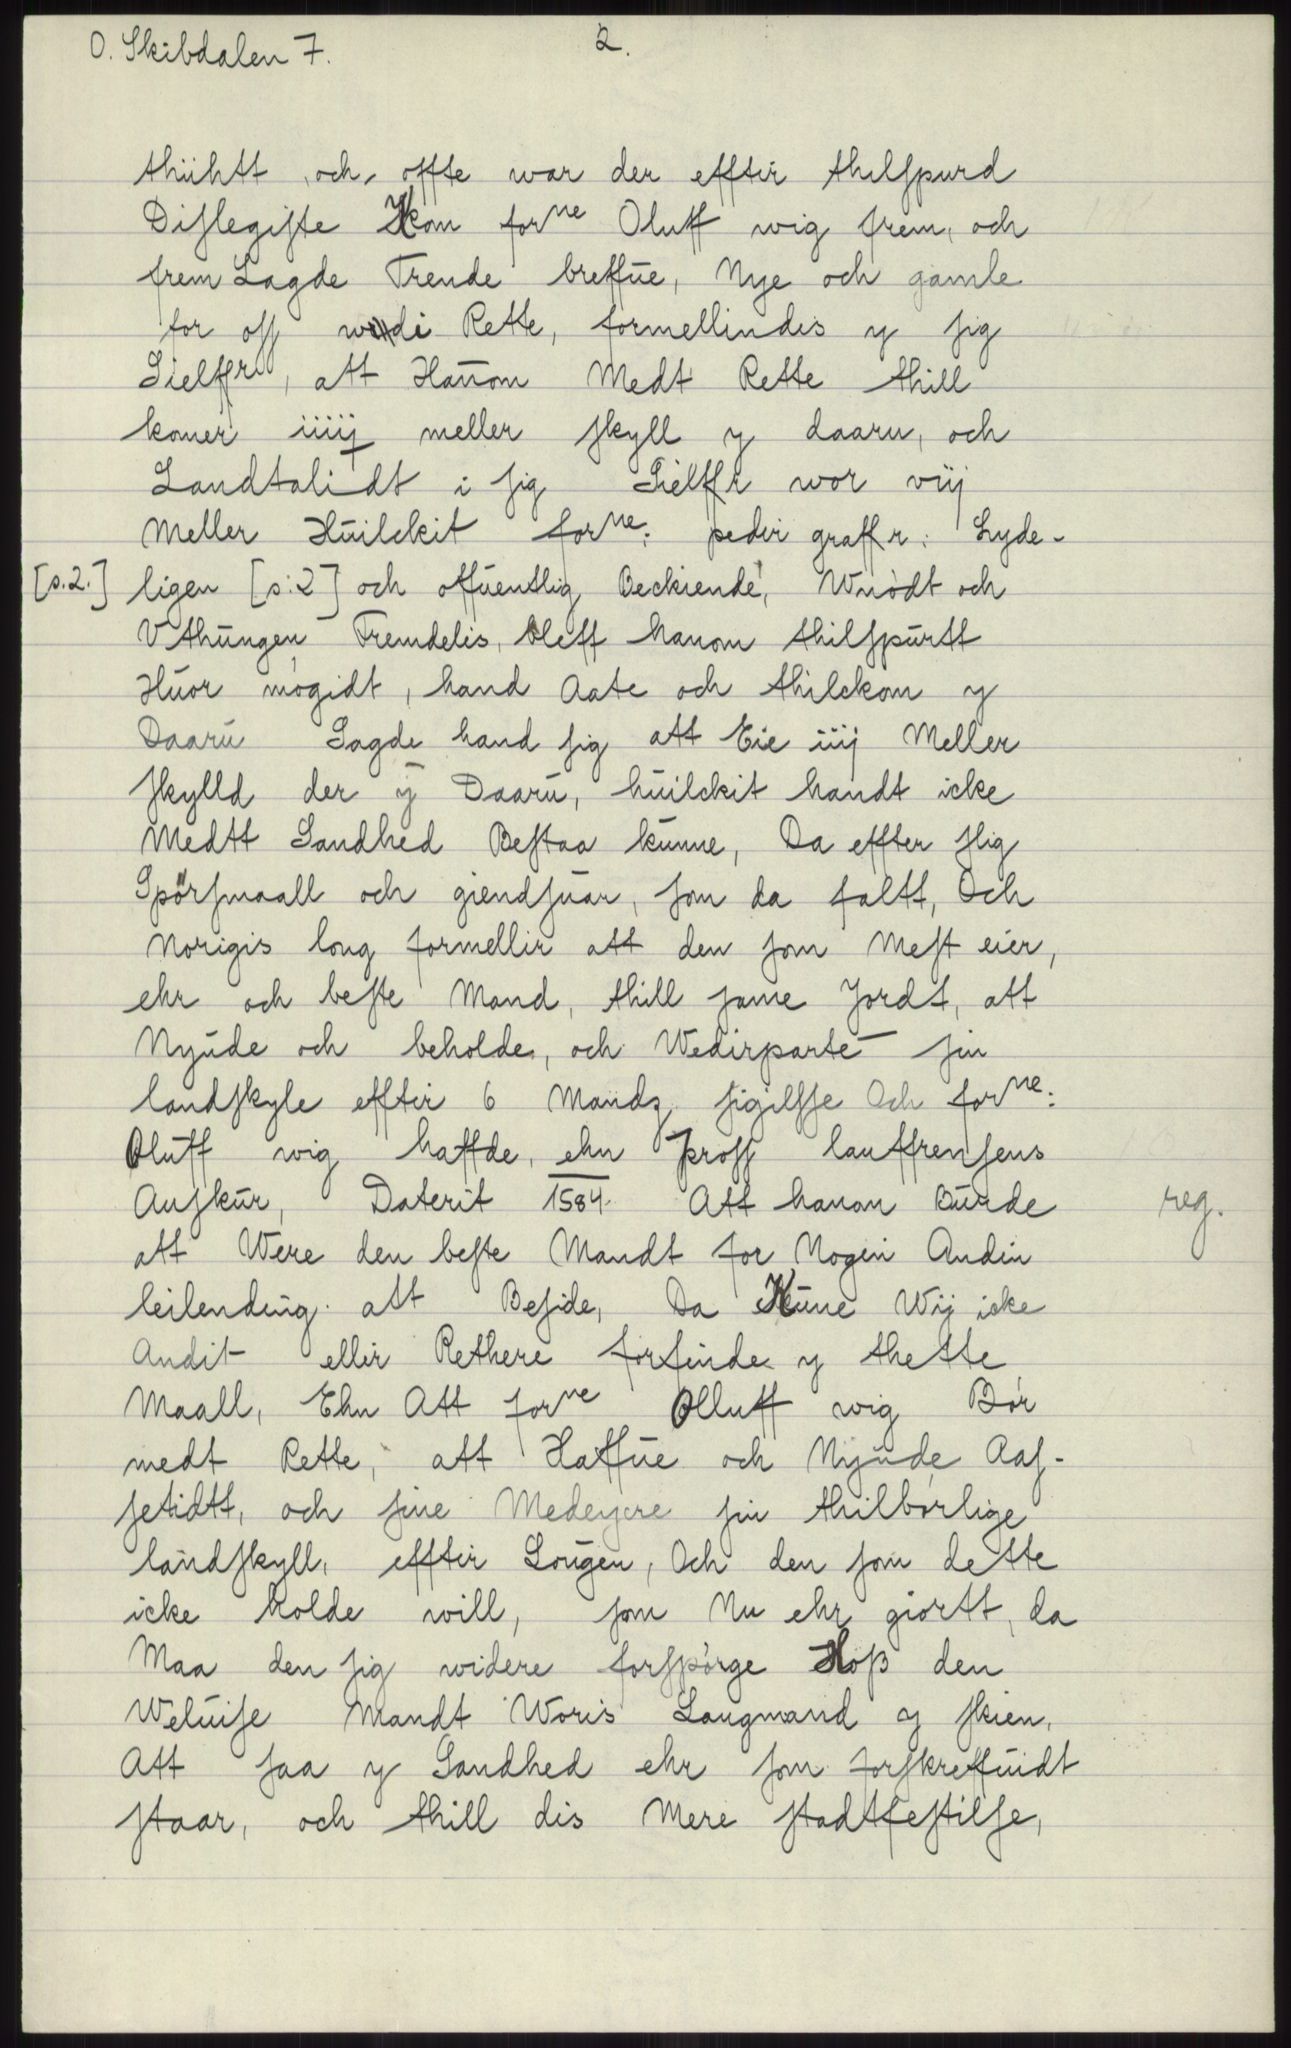 O. Skibdalen 7.
2.
thiihtt och offte war der efftir thilspurd
Dislegiste Kom forne Oluff wig frem, och
frem Lagde Trende breffue, Nye och gamle
for oss wdi Rette, formellindis y sig
Sielffr, att Hanom Medt Rette thill
komer iiiij meller skyll y daaru, och
Landtalidt i sig Sielffr wor viij
Meller Huilckit forne: pedir graffr: Lyde-
[s.2.] ligen [s:2] och offuentlig Beckiende, Wnødt och
Vthungen Fremdelis, bleff hanom thilspurtt
Huor møgidt, hand Aate och thilckom y
Daaru Sagde hand sig att Eie iiij Meller
skylld der y Daaru, huilckit handt icke
Medtt Sandhed Bestaa kunne, Da effter slig
Spørsmaall och giendsuar, som da faltt, Och
Norigis loug formellir att den som Mest eier,
ehr och beste Mand, thill same Jordt, att
Nyude och beholde, och Wedirparte sin
landskyle efftir 6 Mandz sigilsse Och forne:
Oluff wig haffde, ehn Jross lauffrensens
Auskur, Daterit 1584. Att hanom burde reg.
att Were den beste Mandt for Nogin Andin
leilending att Beside, Da Kune Wij icke
Andit ellir Rethere forfinde y thette
Maall, Ehn Att forne Olluff wig Bør
medt Rette, att Haffue och Nyude Aas-
setidtt, och sine Medeyere sin thilbørlige
landskyll, efftir Lougen, Och den som dette
icke holde will, som Nu ehr giortt, da
Maa den sig widere forspørge Hoß den
Weluise Mandt Woris Laugmand y skien,
Att saa y Sandhed ehr som forskreffuidt
staar, och thill dis Mere stadtfestilse,